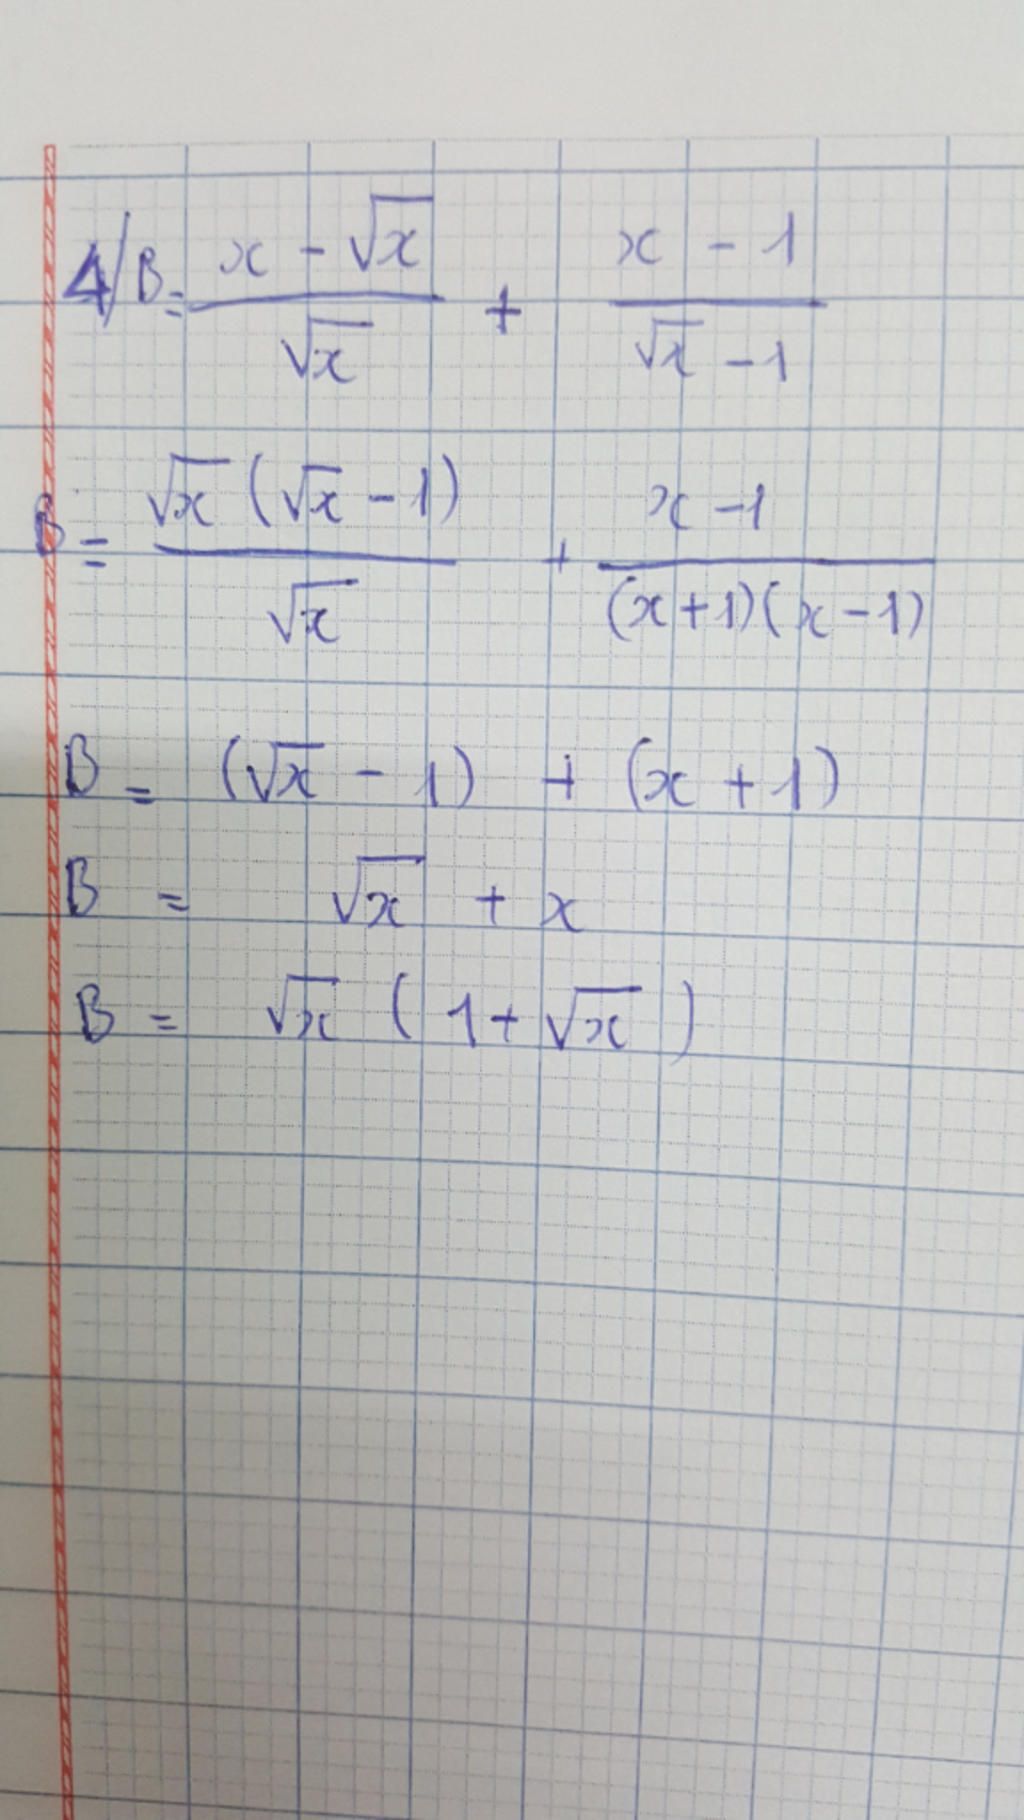 4/ B = (x - √x)/√x + (x - 1)/(√x - 1)
B = √x (√x - 1)/√x + (x - 1)/((x + 1)(x - 1))
B = (√x - 1) + (x + 1)
B = √x + x
B = √x (1 + √x)